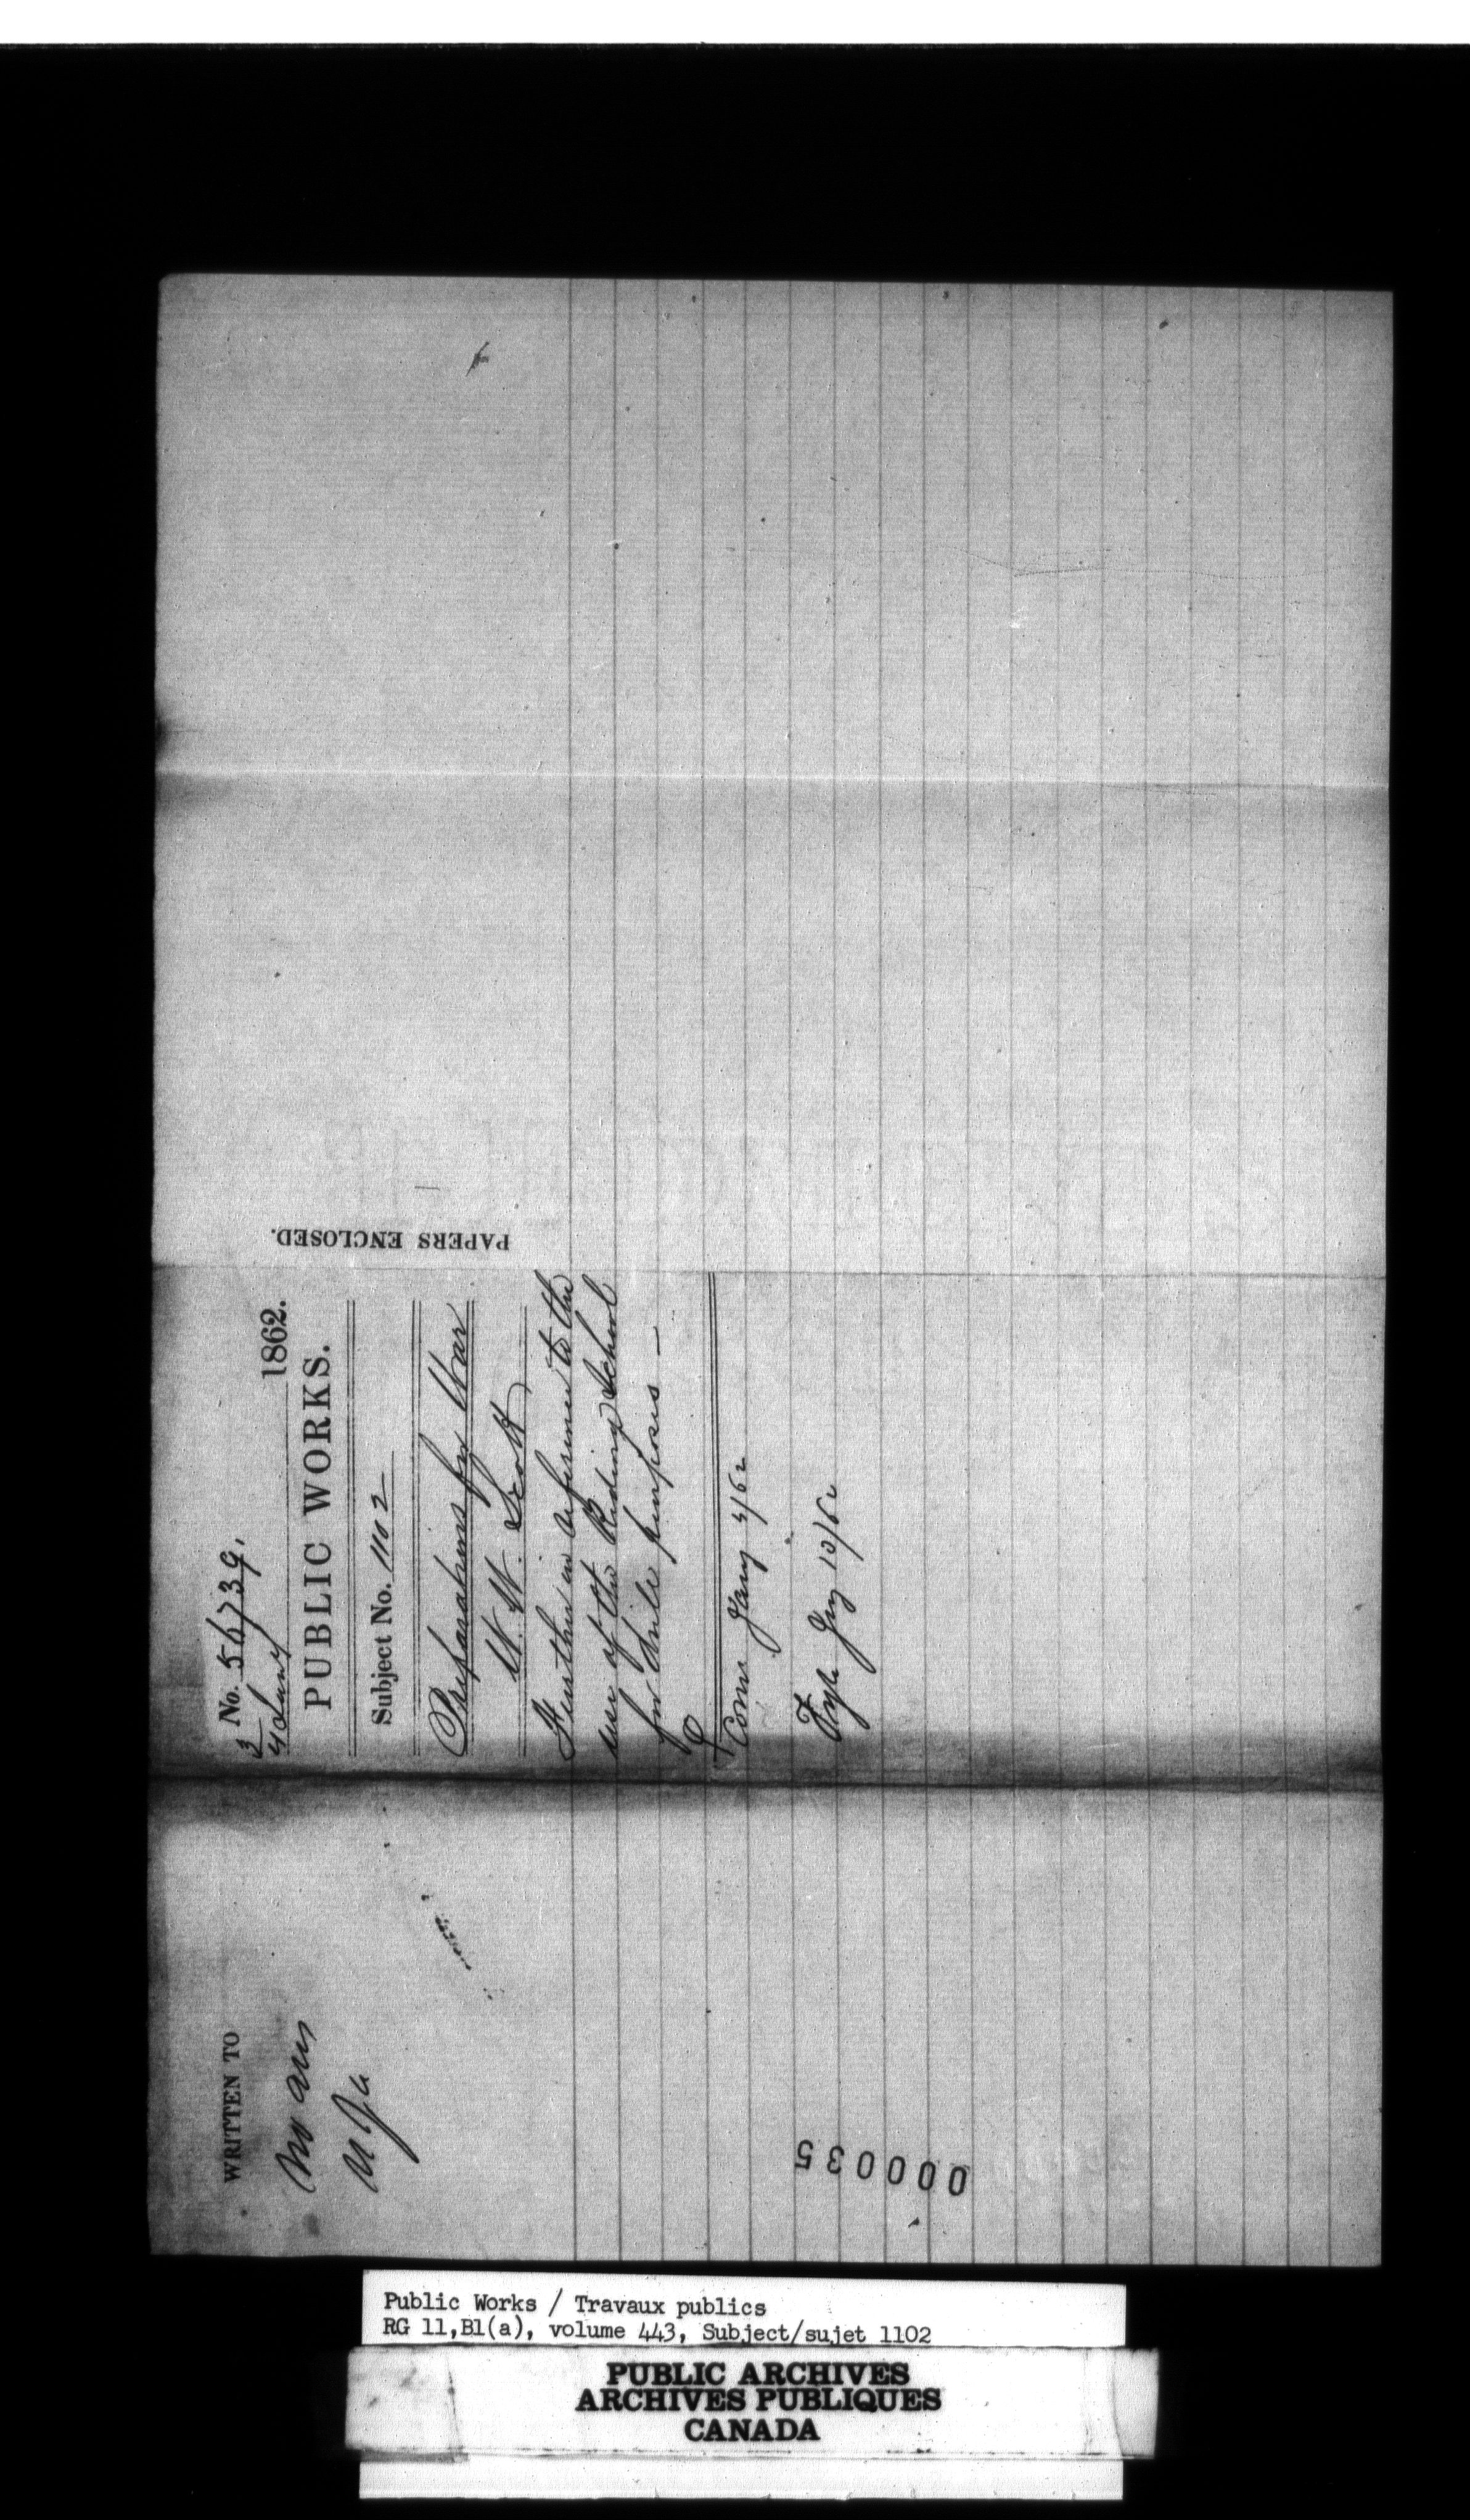 No. 56739.
3
4 Jany 1862.
PUBLIC WORKS.
Subject No. 1102
Preparations for War
W. W. Scott
Further in reference to the
use of the Riding School
for drill purposes —
Comr Jany 4/62
Jny 10/62
PAPERS ENCLOSED.
WRITTEN TO
no ans
000035
Public Works / Travaux publics
RG 11,B1(a), volume 443, Subject/sujet 1102
PUBLIC ARCHIVES
ARCHIVES PUBLIQUES
CANADA